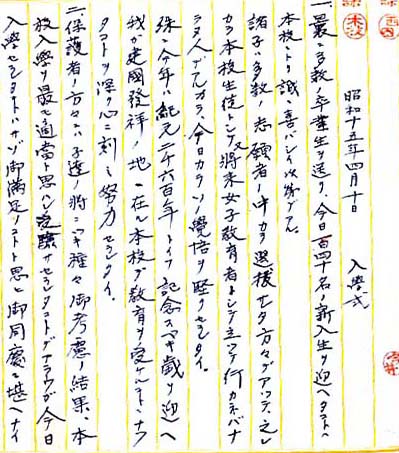 昭和十五年四月十日　入學式
一、最モ多數ノ卒業生ヲ送リ、今日百四十名ノ新入生ヲ迎ヘタコトハ
本校トシテ誠ニ喜バシイ次第デアル。
諸子ハ多數ノ志願者ノ中カラ選抜セラレタ方々デアツテ、之レ
カラ本校生徒トシテ又將来女子教育者トシテ立ツテ行カネバナ
ラヌ人デアルカラ、今日カラソノ覺悟ヲ堅クセラレタイ。
殊ニ今年ハ紀元二千六百年トイフ記念スベキ歳ヲ迎ヘ
我ガ建國發祥ノ地ニ在ル本校デ教育ヲ受ケルコトニナツ
タコトヲ深ク心ニ刻ミ努力セラレタイ。
二、保護者ノ方々ハ子達ノ將来ニツキ種々御考慮ノ結果、本
校入學ヲ最モ適當ト思ハレ受験サセラレタコトデアラウガ今日
入學セラレタコトハサゾ御満足ノコトト思ヒ御同慶ニ堪ヘナイ